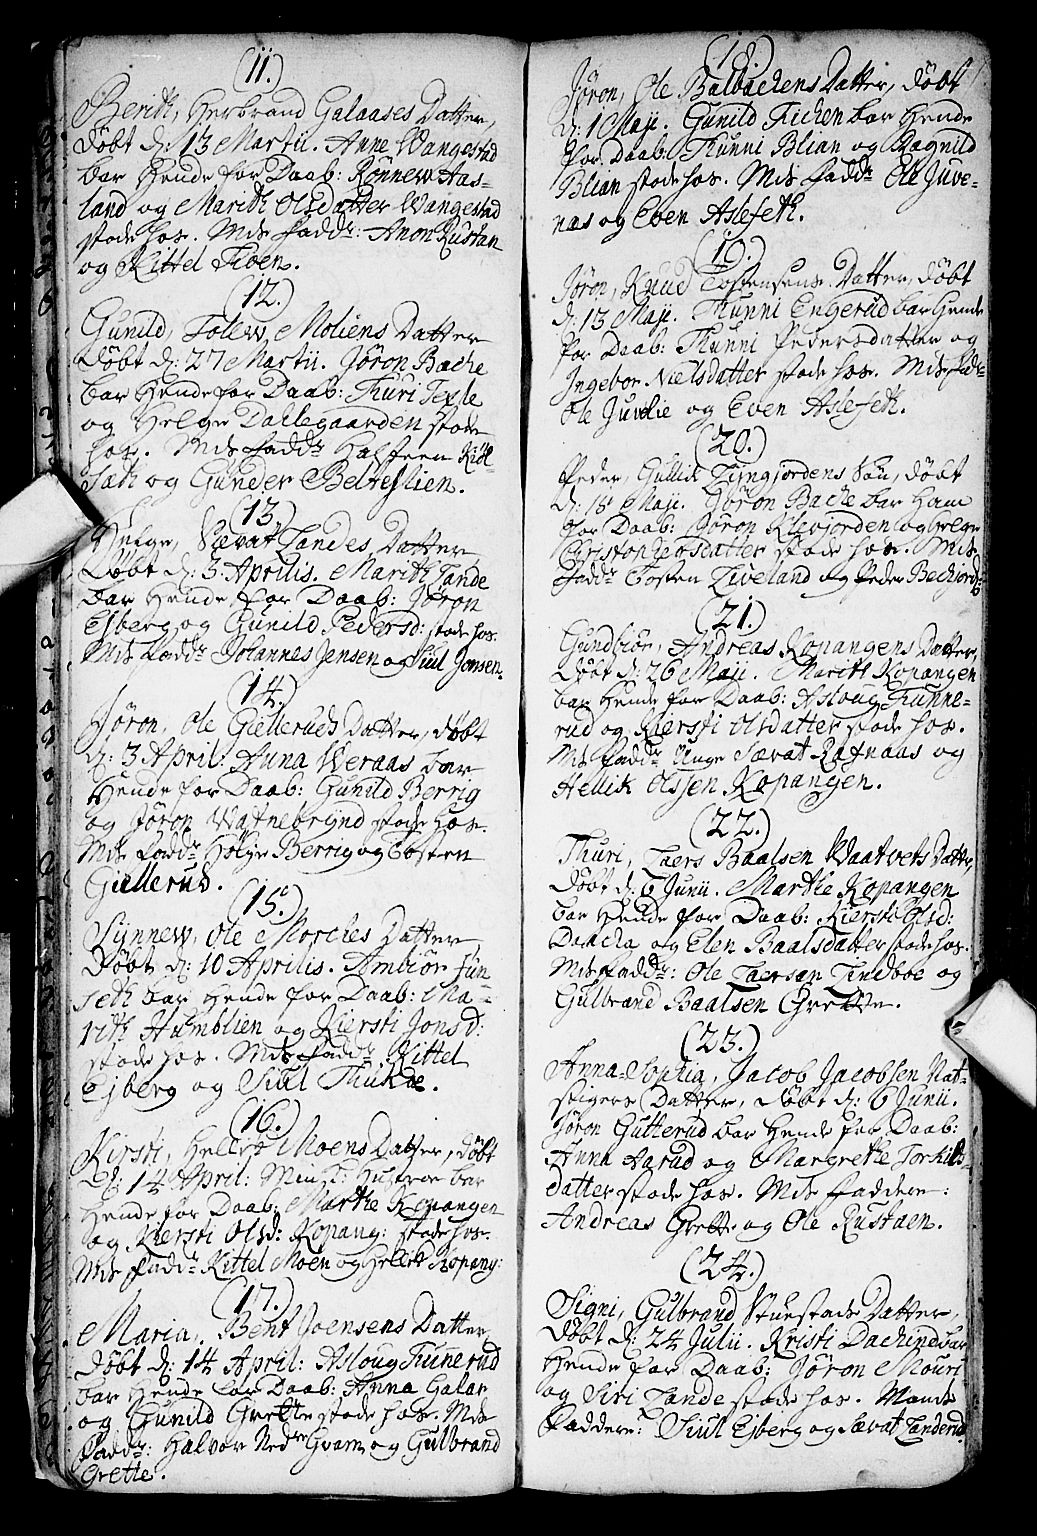 (11.)
Berith, Herbrand Galaases Datter,
Døbt d: 13 Martii. Anne Wangestad
bar Hende for Daab: Rönnew Aas-
land og Marith Olsdatter Wangestad
stode hos. Mds fadd: Anon Rustan
og Kittel Floen.
(12.)
Gunild, Tolew Moliens Datter
Døbt d: 27 Martii. Jøron Bache
bar Hende for Daab: Thuri Texle
og Helge Dallegaarden stode
hos. Mds fadd: Halfteen Kidl-
Sath og Gunder Beltestien.
(13)
Helge, Sævat Landes Datter
Døbt d: 3 Aprilis. Marith Lande
bar Hende for Daab: Jøron
Esberg og Gunild Pedersd: stode hos.
Mds fadd: Johannes Jensen og Siul Jonsen.
(14.)
Jøron, Ole Gielleruds Datter, døbt
d: 3 April: Anna Weraas bar
Hende for Daab: Gunild Berrig
og Jøron Watnebrynd stode hos.
Mds fadd: Hølje Berrig og Tosten
Giellerud.
(15.)
Synnew, Ole Morches Datter
Døbt d: 10 Aprilis. Ambiør Jun-
seth bar Hende for Daab: Ma-
rith Humblien og Kiersti Jonsd:
stode hos. Mds fadd: Kittel
Esberg og Siul Thukæ.
(16.)
Kirsti, Hellek Moens Datter, døbt
d: 14 April: Min S: Hustroe bar
Hende for Daab: Marthe Kopangen
og Kiersti Olsd: Kopang: stode hos.
Mds fadd: Kittel Moen og Hellek Kopang:
(17.)
Maria, Bent Joensens Datter
Døbt d: 14 April: Asloug Tunerud
bar Hende for Daab: Anna Galar
og Gunild Grette stode hos. Mds
fadd: Halvor Nedre Gvam og Gulbrand
Grette.
(18.)
Jøron, Ole Balbachens Datter, døbt
d: 1 Maji. Gunild Kichen bar Hende
for Daab: Thunni Blian og Ragnild
Blian stode hos. Mds fadd: Ole Juve-
nas og Even Asleseth.
(19.)
Jøron, Knud Tostensens Datter, døbt
d: 13 Maji. Thunni Engerud bar Hende
for Daab: Thunni Pedersdatter og
Ingebor Nielsdatter stode hos. Mds fad:
Ole Juvlie og Even Asleseth.
(20.)
Peder, Gullik Lijngjordens Søn, døbt
d: 15 Maji. Jøron Bache bar Ham
for Daab: Jøron Klevjorden og Helge
Christophersdatter stode hos. Mds
fadd: Tosten Liveland og Peder Bechjord:
(21.)
Gundbiør, Andreas Kopangens Datter,
Døbt d: 26 Maji. Marith Kopangen
bar Hende for Daab: Asloug Tunne-
rud og Kiersti Olsdatter stode hos.
Mds fadd: Unge Sævat Rafnaas og
Hellik Olssen Kopangen.
(22.)
Thuri, Laers Baalsen Waatvets Datter,
Døbt d: 6 Junii. Marthe Kopangen
bar Hende for Daab: Kiersti Olsd:
Daacha og Elen Baalsdatter stode hos.
Mds fadd: Ole Laersøn Lindboe og
Gulbrand Baalsen Grette.
(23.)
Anna Sophia, Jacob Jacobsen Nat-
stigers Datter, døbt d: 6 Junii.
Jøron Gutterud bar Hende for Daab:
Anna Aarud og Margrethe Torkils-
datter stode hos. Mds faddere:
Andreas Grette og Ole Rustaen.
(24.)
Signi, Gulbrand Stuestads Datter,
Døbt d: 24 Julii. Kristi Dachine bar
Hende for Daab: Jøron Mouri
og Siri Lande stode hos. Mands
Faddere: Siul Esberg og Sævat Landerud.